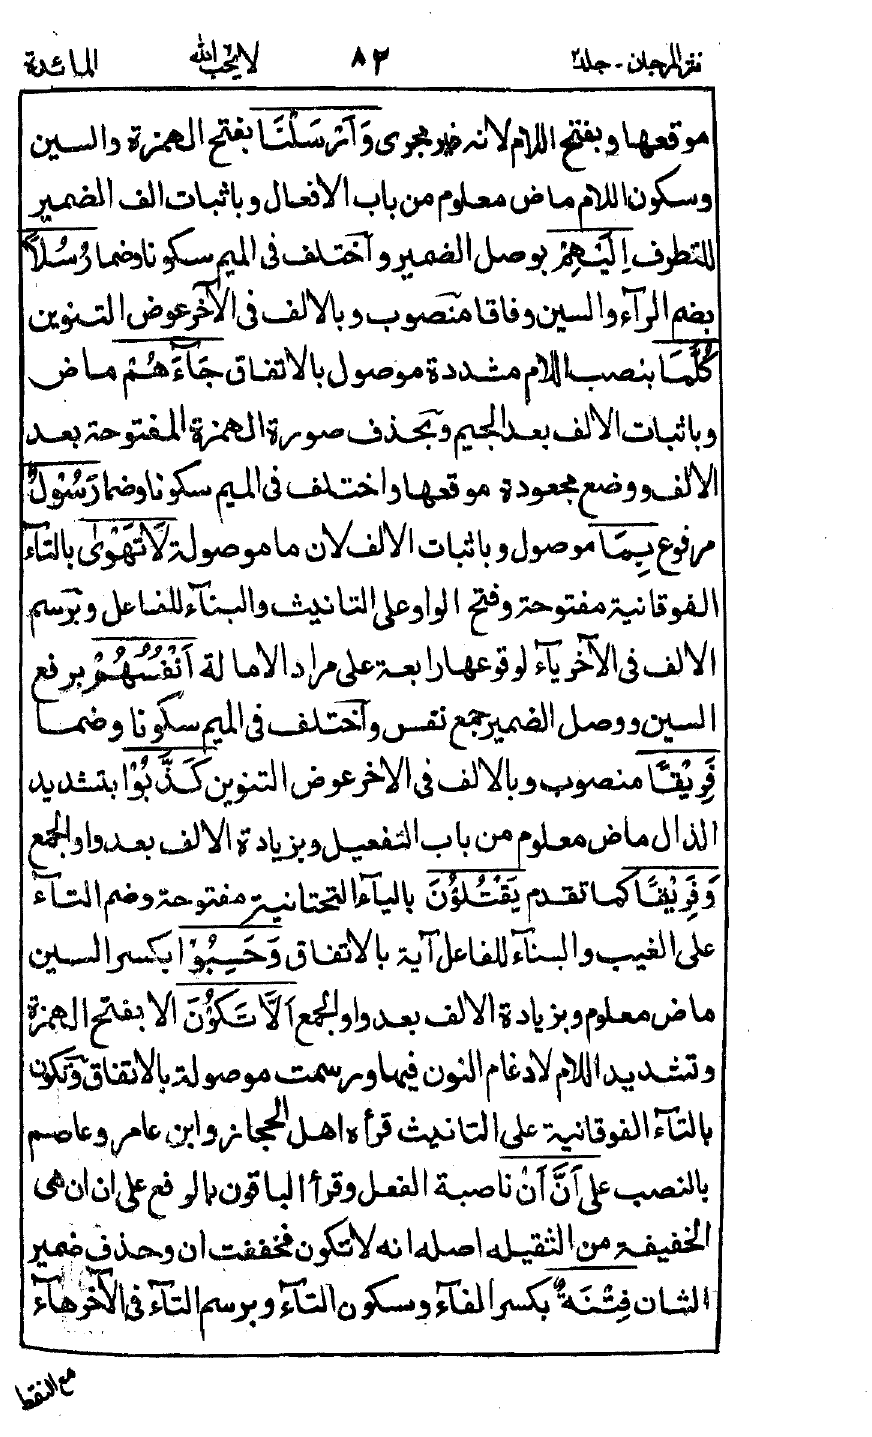 نثر المرجان - جلد ٢ ٨٢ لا يحب الله المائدة
موقعها وبفتح اللام لانه غير مجوى وَاَرْسَلْنَا بفتح الهمزة والسين
وسكون اللام ماض معلوم من باب الافعال وباثبات الف الضمير
للتطرف اِلَيْهِمْ بوصل الضمير واختلف فى الميم سكونا وضما رُسُلًا
بضم الرآء والسين وفاقا منصوب وبالالف فى الآخر عوض التنوين
كُلَّمَا بنصب اللام مشددة موصول بالاتفاق جَآءَهُمْ ماض
وباثبات الالف بعد الجيم وبحذف صورة الهمزة المفتوحة بعد
الالف ووضع مجعودة موقعها واختلف فى الميم سكونا وضما رَسُوْلٌ
مرفوع بِمَا موصول وباثبات الالف لان ما موصولة لَا تَهْوٰى بالتآء
الفوقانية مفتوحة وفتح الواو على التانيث والبنآء للفاعل وبرسم
الالف فى الآخر يآء لوقوعها رابعة على مراد الامالة اَنْفُسُهُمْ برفع
السين ووصل الضمير جمع نفس واختلف فى الميم سكونا وضما
فَرِيْقًا منصوب وبالالف فى الاخر عوض التنوين كَذَّبُوْا بتشديد
الذال ماض معلوم من باب التفعيل وبزيادة الالف بعد واو الجمع
وَفَرِيْقًا كما تقدم يَقْتُلُوْنَ باليآء التحتانية مفتوحة وضم التآء
على الغيب والبنآء للفاعل آية بالاتفاق وَحَسِبُوْا بكسر السين
ماض معلوم وبزيادة الالف بعد واو الجمع اَلَّا تَكُوْنَ الا بفتح الهمزة
وتشديد اللام لادغام النون فيها ورسمت موصولة بالاتفاق وتكون
بالتآء الفوقانية على التانيث قرأه اهل الحجاز وابن عامر وعاصم
بالنصب على اَنَّ اَنْ ناصبة الفعل وقرأ الباقون بالرفع على ان ان هى
الخفيفة من الثقيله اصله انه لا تكون فخففت ان وحذف ضمير
الشان فِتْنَةٌ بكسر الفآء وسكون التآء وبرسم التآء فى الآخر هآء
مع النقط